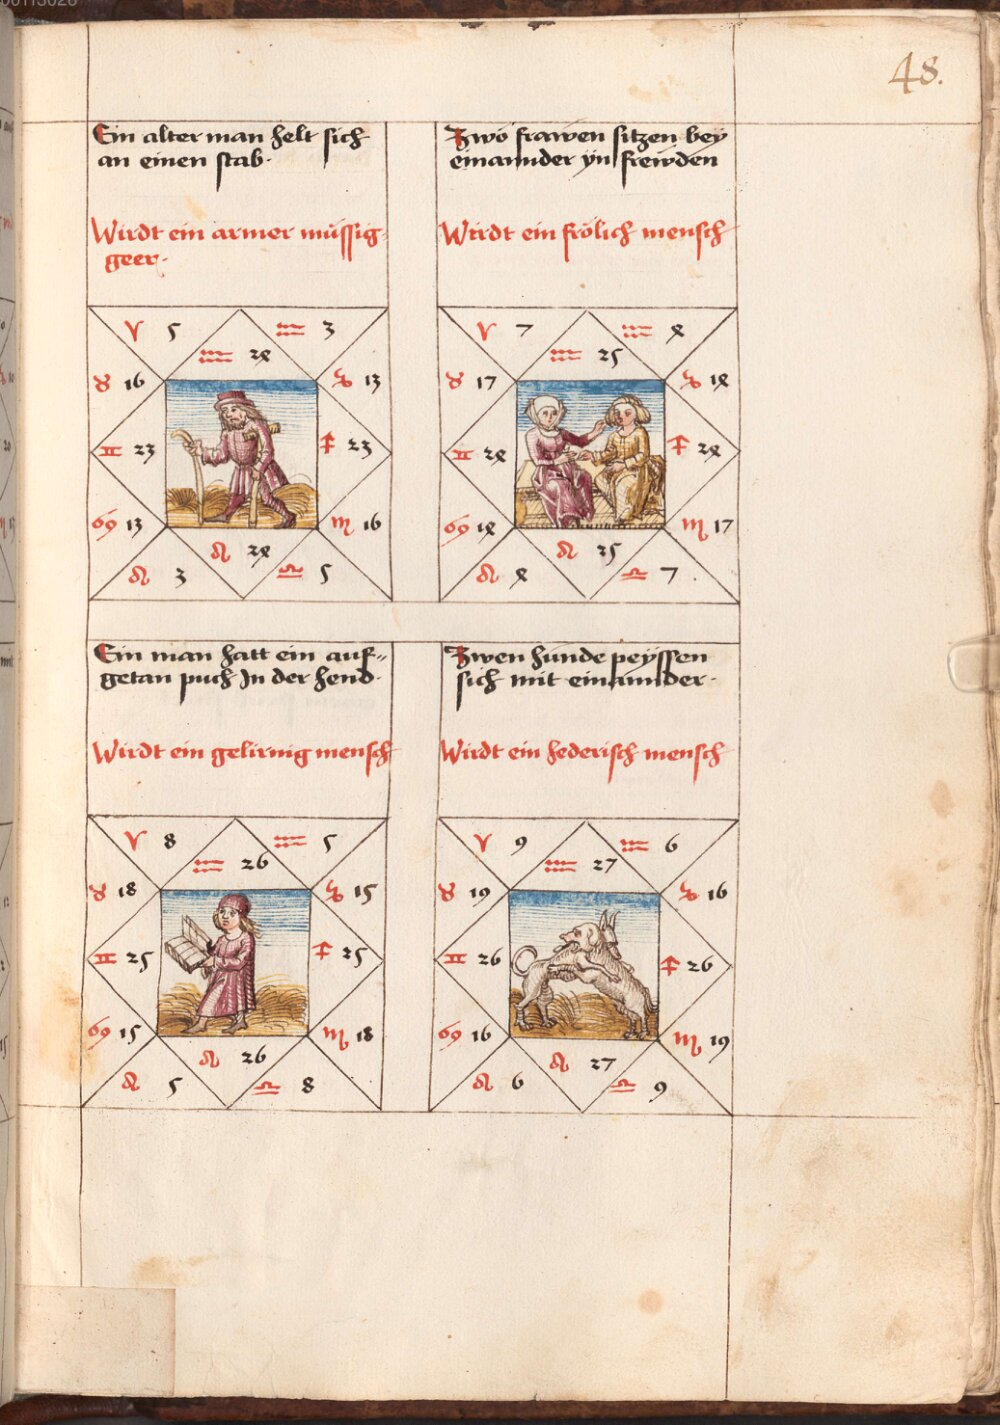 48.
Ein alter man helt sich
an einen stab.
Wirdt ein armer müssig-
geer.
♈ 5 ♒ 3
♒ 28
♉ 16 ♑ 13
♊ 23 ♐ 23
♋ 13 ♏ 16
♌ 28
♌ 3 ♎ 5
Zwo frawen sitzen bey
einannder yn frewden
Wirdt ein frölich mensch
♈ 7 ♒ 8
♒ 25
♉ 17 ♑ 18
♊ 28 ♐ 28
♋ 18 ♏ 17
♌ 25
♌ 8 ♎ 7
Ein man hatt ein auf-
getan puch In der hend.
Wirdt ein gelirnig mensch
♈ 8 ♒ 5
♒ 26
♉ 18 ♑ 15
♊ 25 ♐ 25
♋ 15 ♏ 18
♌ 26
♌ 5 ♎ 8
Zwen hunde peyssen
sich mit einannder.
Wirdt ein hederisch mensch
♈ 9 ♒ 6
♒ 27
♉ 19 ♑ 16
♊ 26 ♐ 26
♋ 16 ♏ 19
♌ 27
♌ 6 ♎ 9